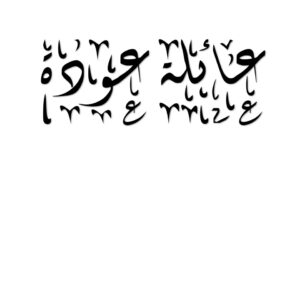 عائلة عودة